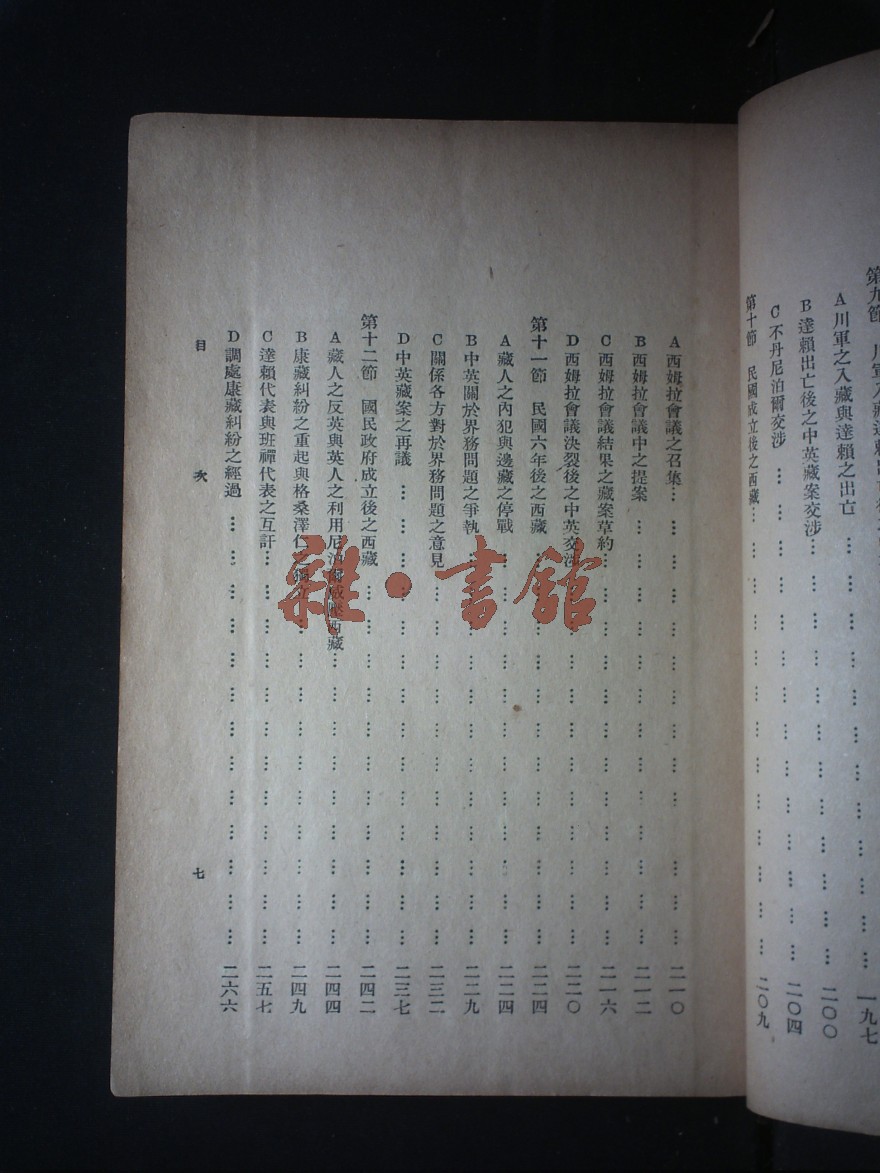 第九節 川軍入藏達賴出亡
一九七
A 川軍之入藏與達賴之出亡
二〇〇
B 達賴出亡後之中英藏案交涉… … … … … … … … … … … 二〇四
C 不丹尼泊爾交涉 … … … … … … … … … … … …
第十節 民國成立後之西藏… … … … … … … … … … … … 二〇九
A 西姆拉會議之召集… … … … … … … … … … … … 二一〇
B 西姆拉會議中之提案 … … … … … … … … … … … … 二一二
C 西姆拉會議結果之藏案草約… … … … … … … … … … … 二一六
D 西姆拉會議決裂後之中英交涉 … … … … … … … … … … 二二〇
第十一節 民國六年後之西藏 … … … … … … … … … … … 二二四
A 藏人之內犯與邊藏之停戰 … … … … … … … … … … … 二二四
B 中英關於界務問題之爭執 … … … … … … … … … … … 二二九
C 關係各方對於界務問題之意見 … … … … … … … … … … 二三二
D 中英藏案之再議 … … … … … … … … … … … … … 二三七
第十二節 國民政府成立後之西藏 … … … … … … … … … … 二四二
A 藏人之反英與英人之利用尼泊爾威壓西藏… … … … … … … … 二四四
B 康藏糾紛之重起與格桑澤仁之獨立 … … … … … … … … … 二四九
C 達賴代表與班禪代表之互訐… … … … … … … … … … … 二五七
D 調處康藏糾紛之經過 … … … … … … … … … … … … 二六六
目 次 七
雜·書館